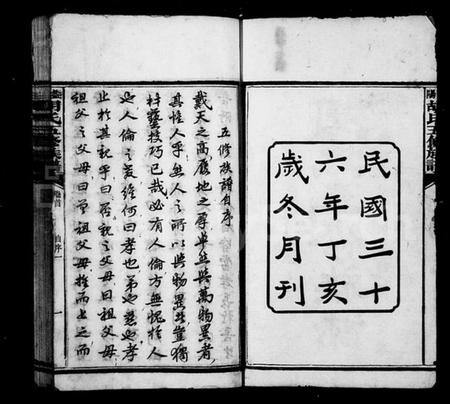 民國三十
六年丁亥
歲冬月刊
五修族譜自序
戴天之高履地之厚卓然與萬物異者
其惟人乎無人之所以與物異豈獨
梓藝技巧已哉必有人倫方無愧於人
也人倫之義維何曰孝也弟也慈也孝
止於其親乎曰否親之父母曰祖父母
祖父之父母曰曾祖父母推而上之而
胡氏五修族譜
卷首